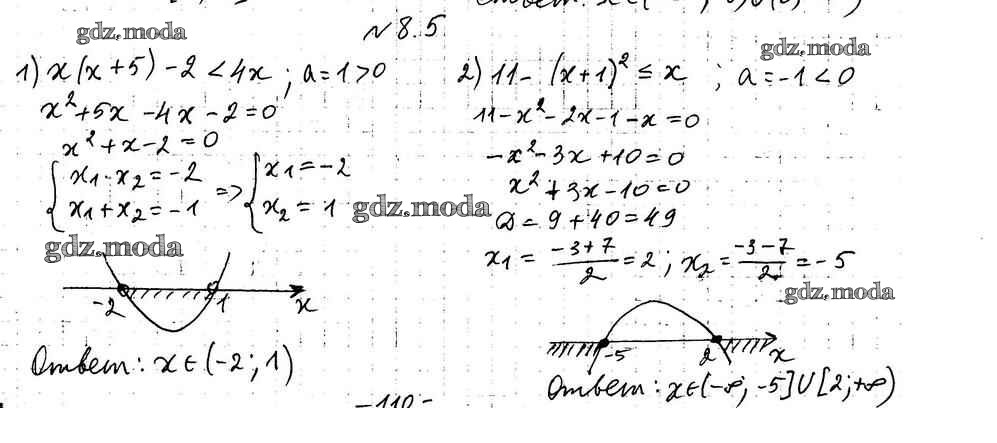 Ответ: x ∈ (
№ 8.5
gdz.moda
1) x(x+5) - 2 < 4x ; a = 1 > 0
x² + 5x - 4x - 2 = 0
x² + x - 2 = 0
{ x₁ · x₂ = -2
x₁ + x₂ = -1
=> { x₁ = -2
x₂ = 1
gdz.moda
gdz.moda
-2 1 x
Ответ: x ∈ (-2; 1)
gdz.moda
2) 11 - (x+1)² ≤ x ; a = -1 < 0
11 - x² - 2x - 1 - x = 0
-x² - 3x + 10 = 0
x² + 3x - 10 = 0
D = 9 + 40 = 49
x₁ = (-3+7)/2 = 2 ; x₂ = (-3-7)/2 = -5
gdz.moda
-5 2 x
Ответ: x ∈ (-∞; -5] U [2; +∞)
-110-